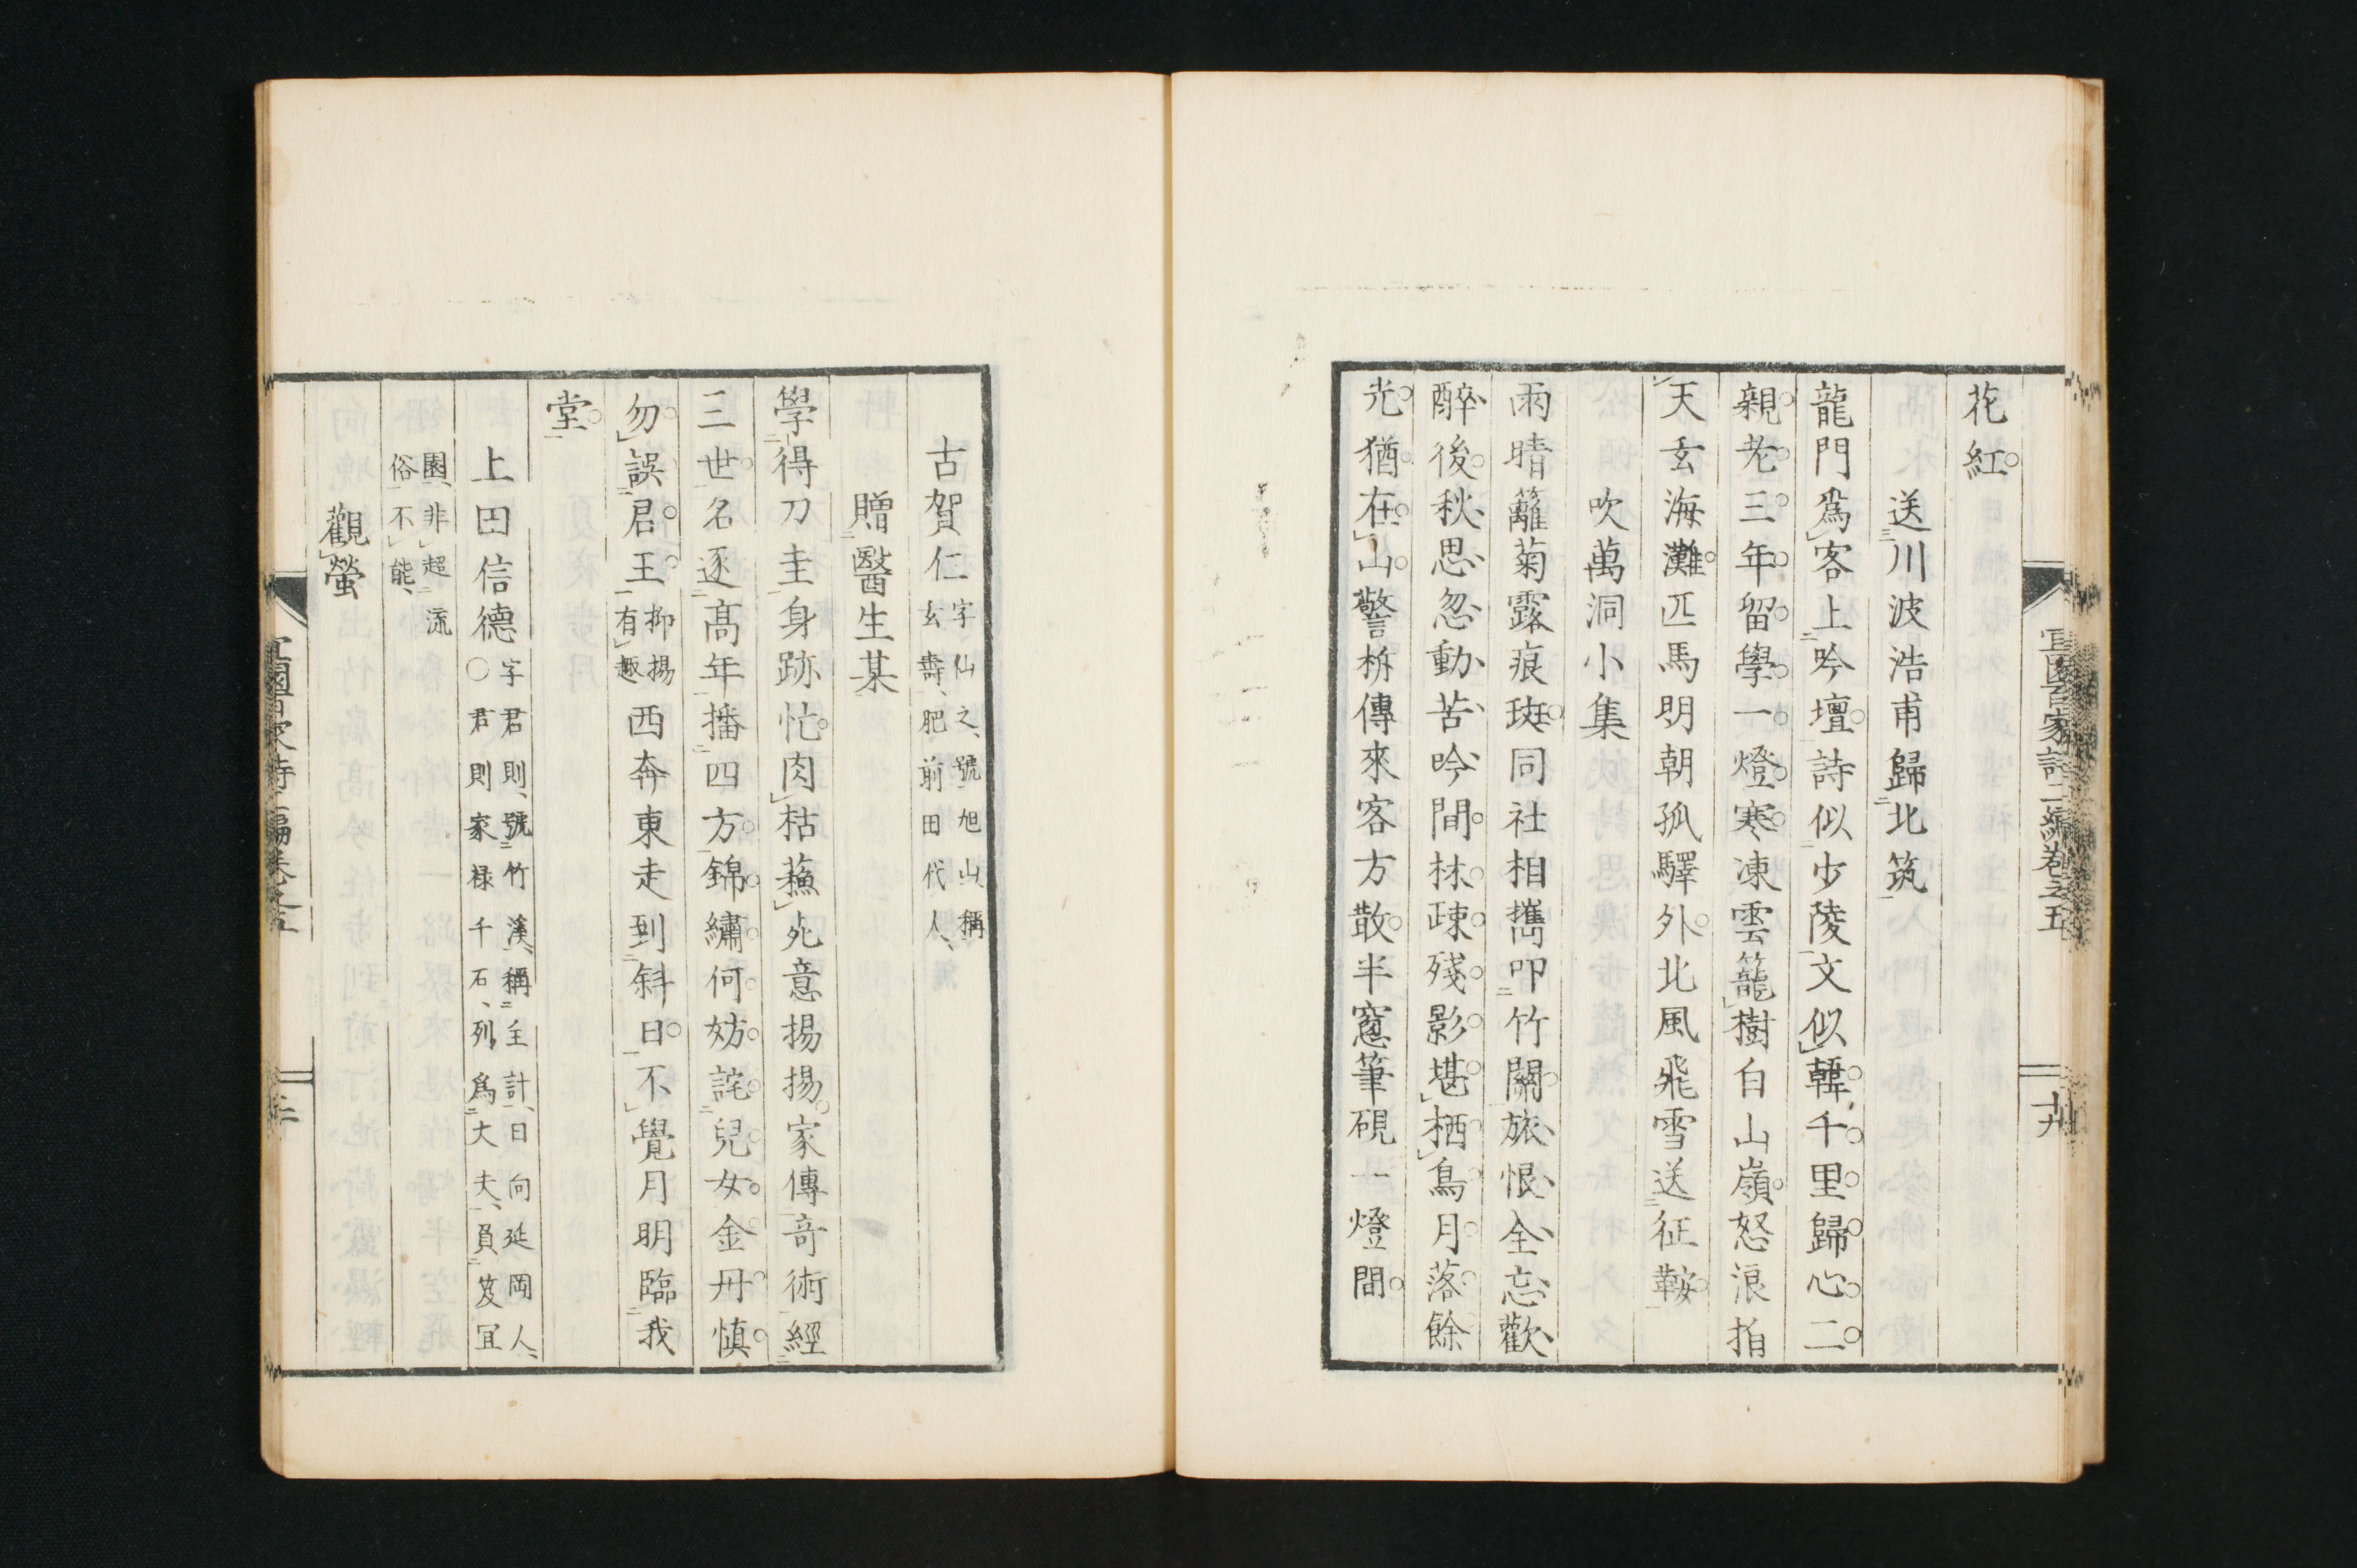 花紅
送川波浩甫歸北筑
龍門爲客上吟壇詩似少陵文似韓千里歸心二
親老三年留學一燈寒凍雲籠樹白山嶺怒浪拍
天玄海灘匹馬明朝孤驛外北風飛雪送征鞍
吹萬洞小集
雨晴籬菊露痕斑同社相攜叩竹關旅恨全忘歡
醉後秋思忽動苦吟間林疎殘影堪栖鳥月落餘
光猶在山警柝傳來客方散半窻筆硯一燈間
古賀仁
字仙之、號旭山、稱
玄壽、肥前田代人、
贈醫生某
學得刀圭身跡忙肉枯蘓死意揚揚家傳奇術經
三世名逐高年播四方錦繡何妨詫兒女金丹慎
勿誤君王
抑揚
有趣
西奔東走到斜日不覺月明臨我
堂
上田信德
字君則、號竹溪、稱主計、日向延岡人、
○君則家禄千石、列爲大夫、負笈宜
園、非超流
俗不能、
觀螢
宜園百家詩二編卷之五
十九